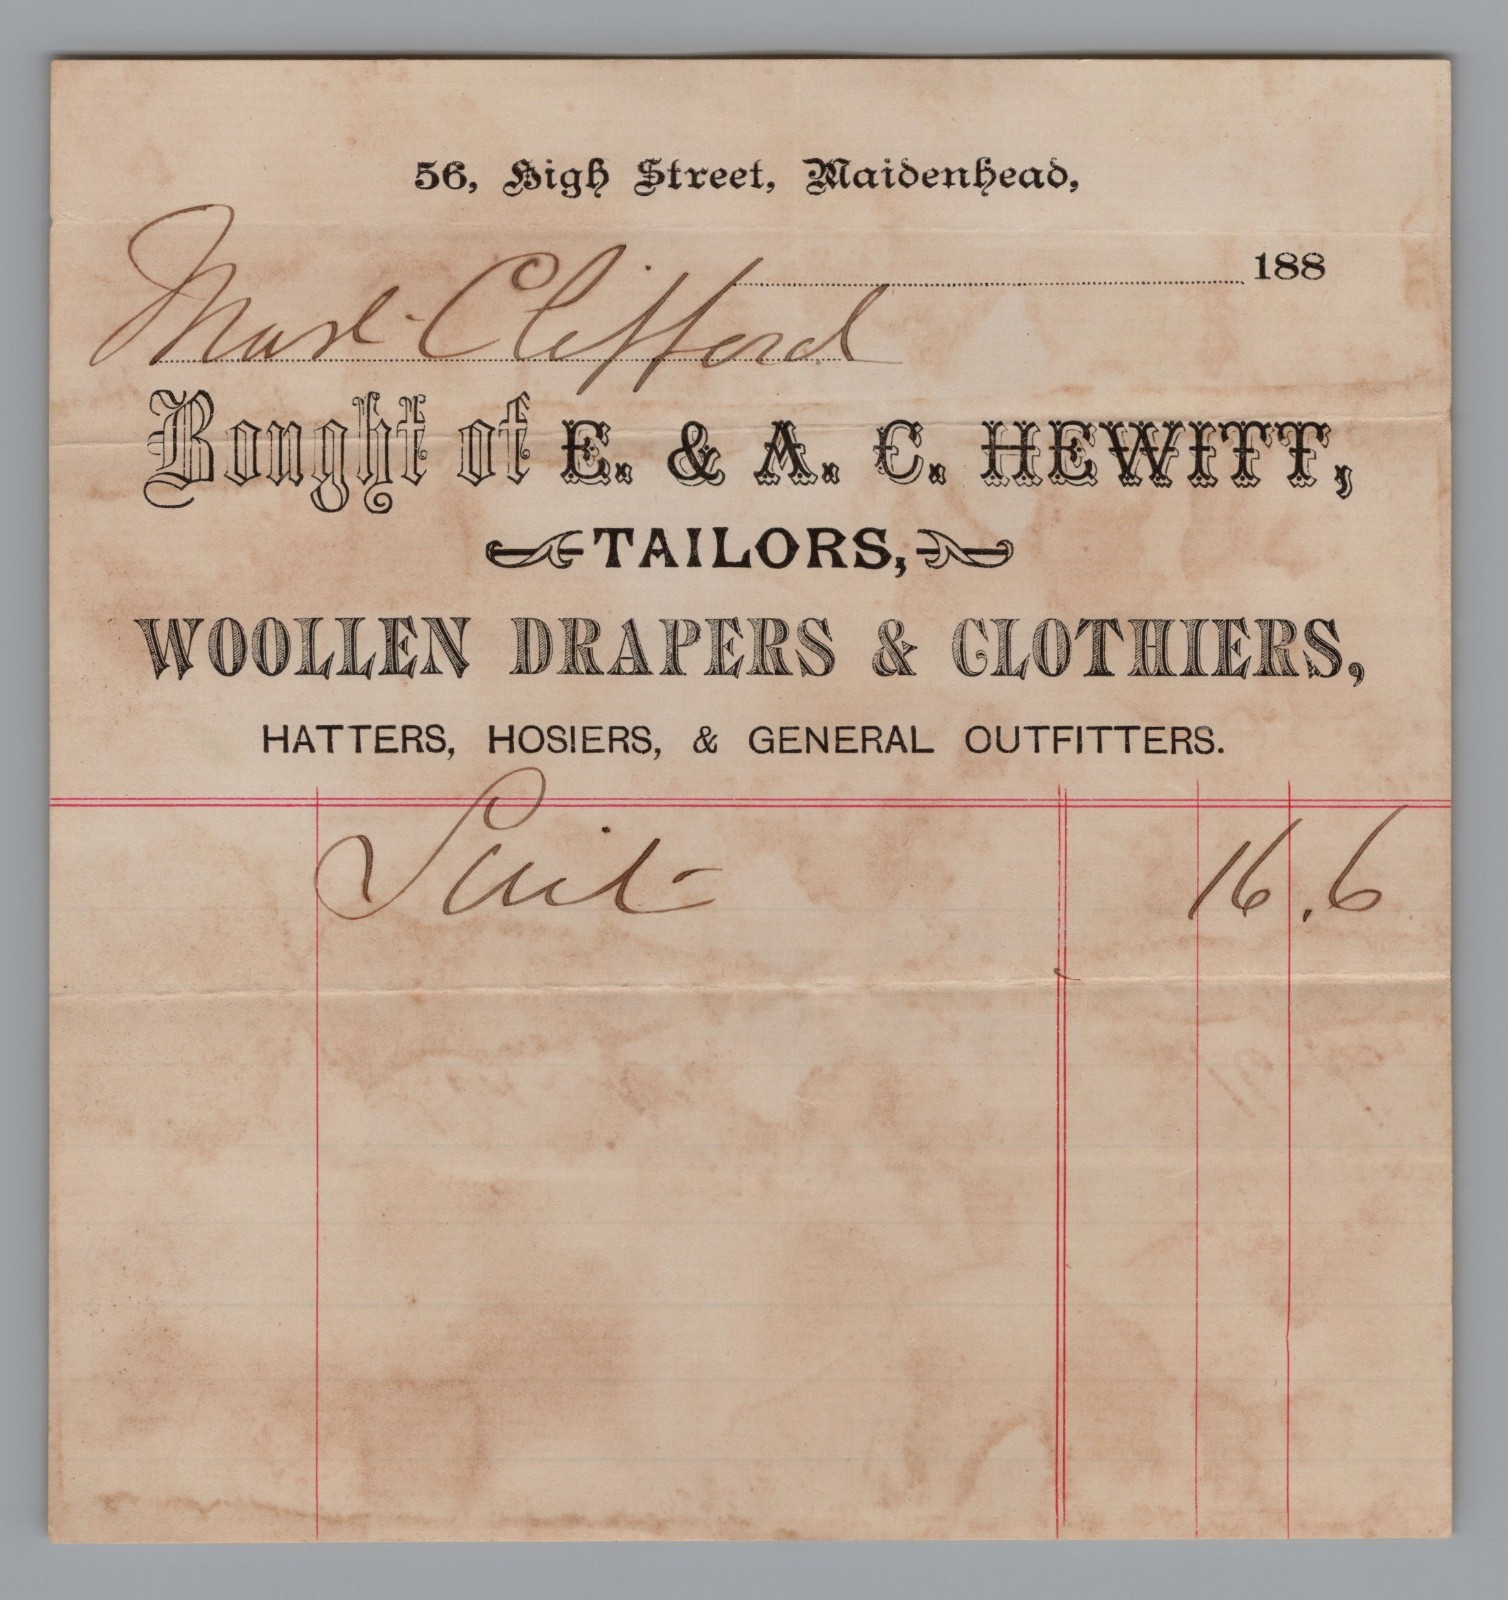 56, High Street, Maidenhead,
188
Mast. Clifford
Bought of E. & A. C. HEWITT,
TAILORS,
WOOLLEN DRAPERS & CLOTHIERS,
HATTERS, HOSIERS, & GENERAL OUTFITTERS.
Suit 16.6